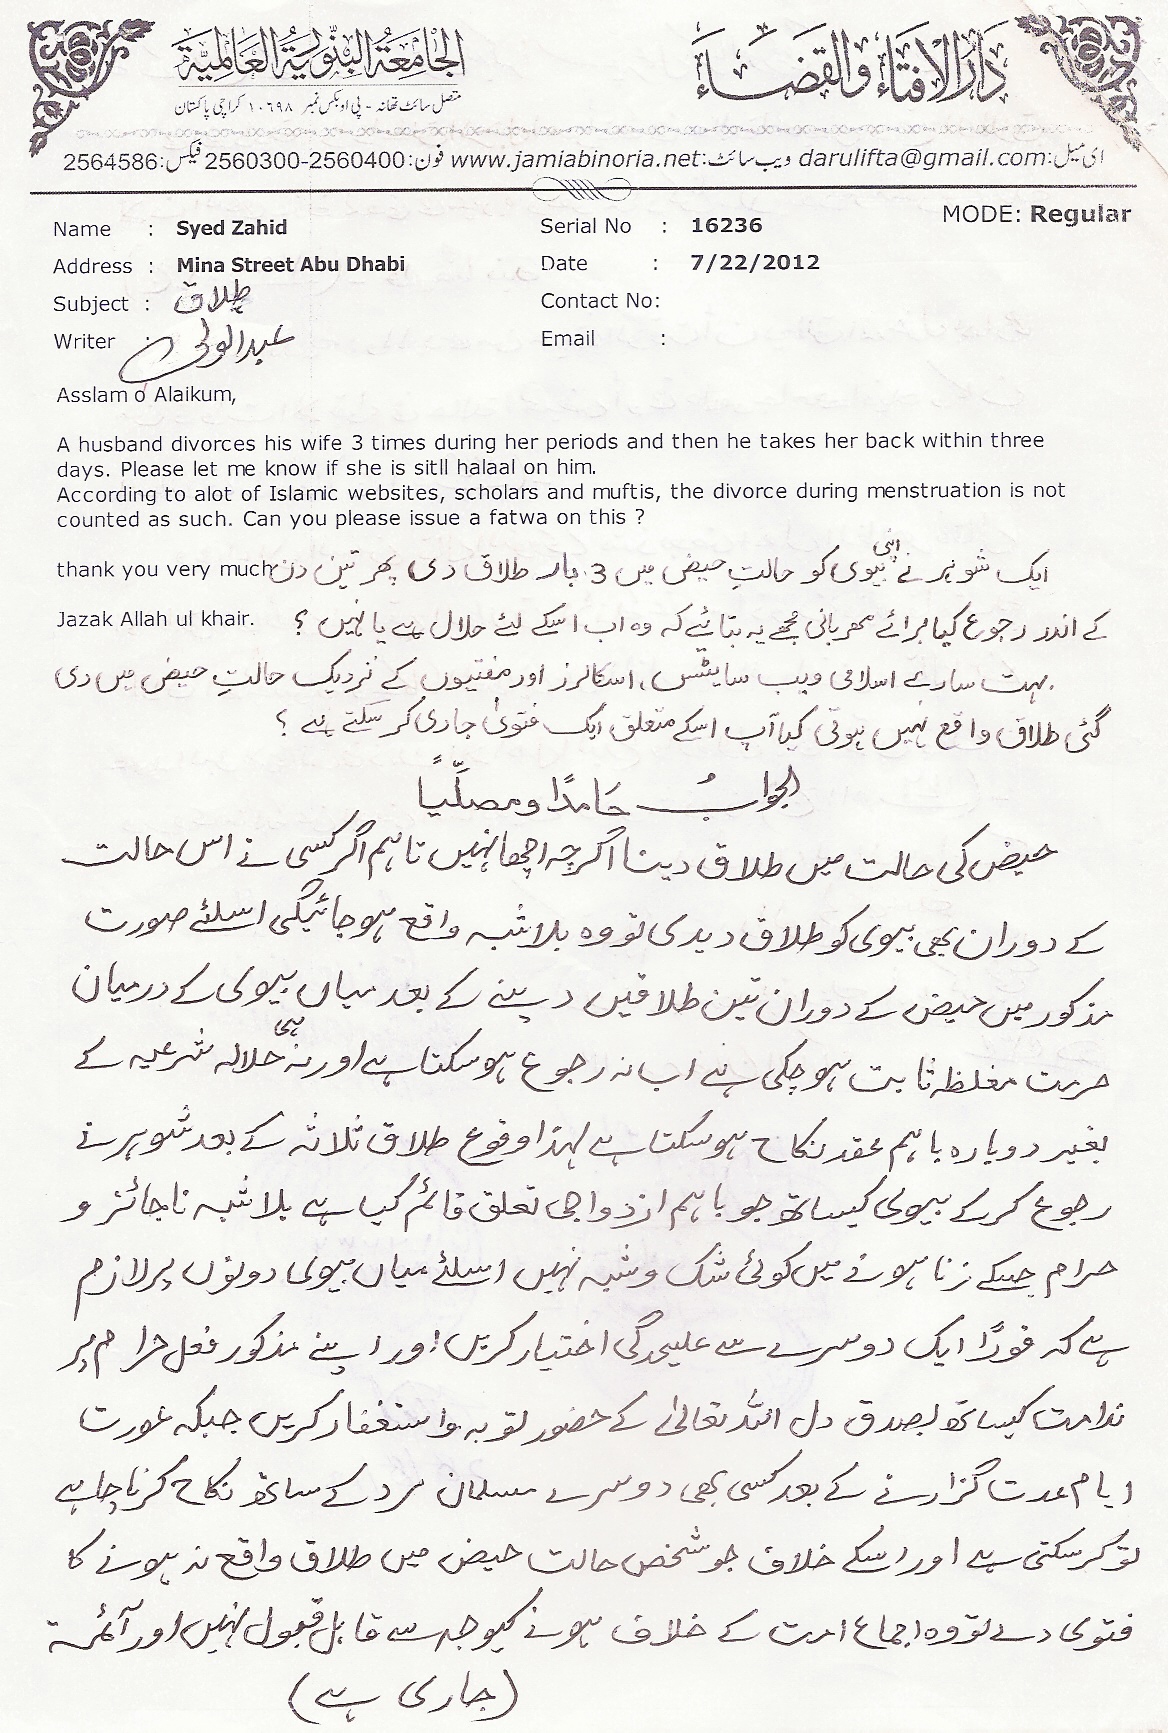 دَارُ الْإِفْتَاءِ وَالْقَضَاءِ
الجَامِعَةُ البِنُّورِيَّةُ العَالَمِيَّة
متصل سائٹ تھانہ - پی او بکس نمبر ۱۰۶۹۸ کراچی پاکستان
ای میل:darulifta@gmail.com ویب سائٹ:www.jamiabinoria.net فون:2560300-2560400 فیکس:2564586
MODE: Regular
Name : Syed Zahid Serial No : 16236
Address : Mina Street Abu Dhabi Date : 7/22/2012
Subject : طلاق Contact No:
Writer : عبدالولی Email :
Asslam o Alaikum,
A husband divorces his wife 3 times during her periods and then he takes her back within three
days. Please let me know if she is sitll halaal on him.
According to alot of Islamic websites, scholars and muftis, the divorce during menstruation is not
counted as such. Can you please issue a fatwa on this ?
thank you very much
ایک شوہر نے اپنی بیوی کو حالتِ حیض میں 3 بار طلاق دی پھر تین دن
Jazak Allah ul khair.
کے اندر رجوع کیا برائے مہربانی مجھے یہ بتائیے کہ وہ اب اسکے لئے حلال ہے یا نہیں ؟
بہت سارے اسلامی ویب سایٹس، اسکالرز اور مفتیوں کے نزدیک حالتِ حیض میں دی
گئی طلاق واقع نہیں ہوتی کیا آپ اسکے متعلق ایک فتویٰ جاری کر سکتے ہے ؟
الجوابُ حَامدًا ومصلّیاً
حیض کی حالت میں طلاق دینا اگرچہ اچھا نہیں تاہم اگر کسی نے اس حالت
کے دوران بھی بیوی کو طلاق دیدی تو وہ بلاشبہ واقع ہو جائیگی اسلئے صورت
مذکور میں حیض کے دوران تین طلاقیں دینے کے بعد میاں بیوی کے درمیان
حرمت مغلظہ ثابت ہو چکی ہے اب نہ رجوع ہو سکتا ہے اور نہ ہی حلالہ شرعیہ کے
بغیر دوبارہ باہم عقد نکاح ہو سکتا ہے لہذا وقوع طلاق ثلاثہ کے بعد شوہر نے
رجوع کر کے بیوی کیساتھ جو باہم ازدواجی تعلق قائم کیا ہے بلاشبہ ناجائز و
حرام جسکے زنا ہونے میں کوئی شک و شبہ نہیں اسلئے میاں بیوی دونوں پر لازم
ہے کہ فوراً ایک دوسرے سے علیحدگی اختیار کریں اور اپنے مذکور فعل حرام پر
ندامت کیساتھ بصدق دل اللہ تعالیٰ کے حضور توبہ و استغفار کریں جبکہ عورت
ایام عدت گزارنے کے بعد کسی بھی دوسرے مسلمان مرد کے ساتھ نکاح کرنا چاہے
تو کر سکتی ہے اور اسکے خلاف جو شخص حالت حیض میں طلاق واقع نہ ہونے کا
فتوی دے تو وہ اجماع امت کے خلاف ہونے کیوجہ سے قابل قبول نہیں اور آئمۃ
(جاری ہے)